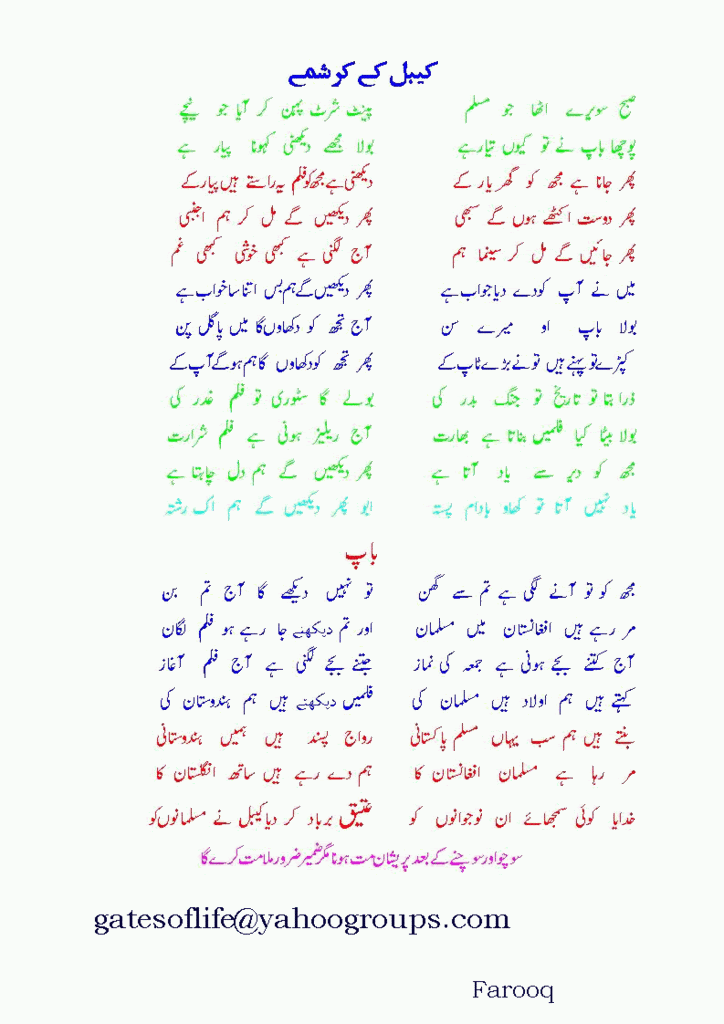 کیبل کے کرشمے
صبح سویرے اٹھا جو مسلم پینٹ شرٹ پہن کر آیا جو نیچے
پوچھا باپ نے تو کیوں تیار ہے بولا مجھے دیکھنی کہونا پیار ہے
پھر جانا ہے مجھ کو گھر یار کے دیکھنی ہے مجھ کو فلم یہ راستے ہیں پیار کے
پھر دوست اکٹھے ہوں گے سبھی پھر دیکھیں گے مل کر ہم اجنبی
پھر جائیں گے مل کر سینما ہم آج لگنی ہے کبھی خوشی کبھی غم
میں نے آپ کو دے دیا جواب ہے پھر دیکھیں گے ہم بس اتنا سا خواب ہے
بولا باپ او میرے سن آج تجھ کو دکھاوں گا میں پاگل پن
کپڑے تو پہنے ہیں تو نے بڑے ٹاپ کے پھر تجھ کو دکھاوں گا ہم ہو گے آپ کے
ذرا بتا تو تاریخ تو جنگ بدر کی بولے گا سٹوری تو فلم غدر کی
بولا بیٹا کیا فلمیں بناتا ہے بھارت آج ریلیز ہونی ہے فلم شرارت
مجھ کو دیر سے یاد آتا ہے پھر دیکھیں گے ہم دل چاہتا ہے
یاد نہیں آتا تو کھاو بادام پستہ ابو پھر دیکھیں گے ہم اک رشتہ
باپ
مجھ کو تو آنے لگی ہے تم سے گھن تو نہیں دیکھے گا آج تم بن
مر رہے ہیں افغانستان میں مسلمان اور تم دیکھنے جا رہے ہو فلم لگان
آج کتنے بجے ہونی ہے جمعہ کی نماز جتنے بجے لگنی ہے آج فلم آغاز
کہتے ہیں ہم اولاد ہیں مسلمان کی فلمیں دیکھتے ہیں ہم ہندوستان کی
بنتے ہیں ہم سب یہاں مسلم پاکستانی رواج پسند ہیں ہمیں ہندوستانی
مر رہا ہے مسلمان افغانستان کا ہم دے رہے ہیں ساتھ انگلستان کا
خدایا کوئی سمجھائے ان نوجوانوں کو عتیق برباد کر دیا کیبل نے مسلمانوں کو
سوچو اور سوچنے کے بعد پریشان مت ہونا مگر ضمیر ضرور ملامت کرے گا
gatesoflife@yahoogroups.com
Farooq